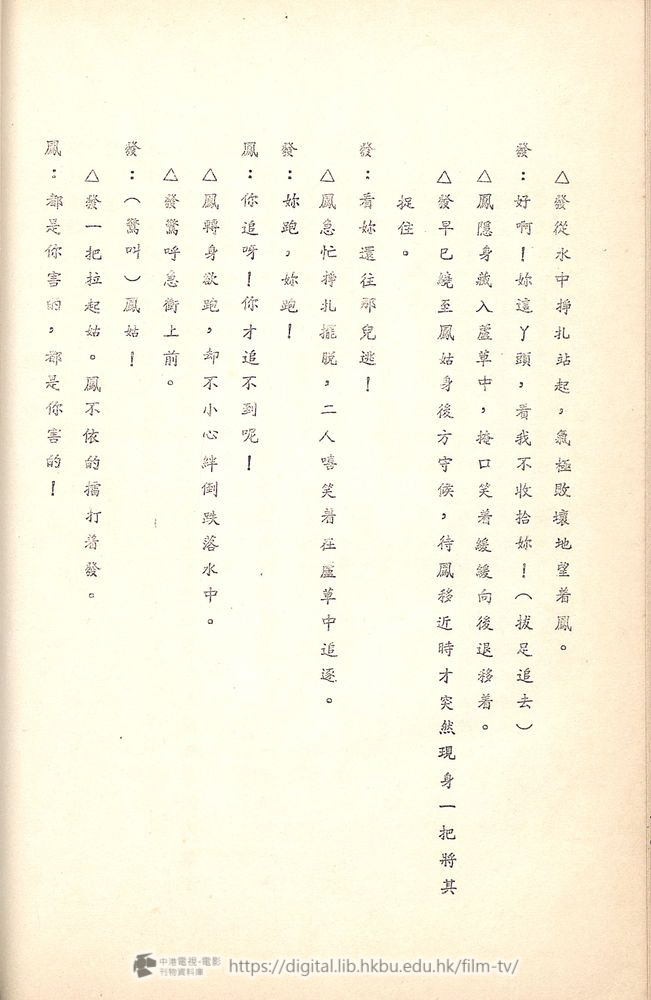 △發從水中掙扎站起，氣極敗壞地望着鳳。
發：好啊！妳這丫頭，看我不收拾妳！（拔足追去）
△鳳隱身藏入蘆草中，掩口笑着緩緩向後退移着。
△發早已繞至鳳姑身後方守候，待鳳移近時才突然現身一把將其
捉住。
發：看妳還往那兒逃！
△鳳急忙掙扎擺脱，二人嘻笑着在蘆草中追逐。
發：妳跑，妳跑！
鳳：你追呀！你才追不到呢！
△鳳轉身欲跑，却不小心絆倒跌落水中。
△發驚呼急衝上前。
發：（驚叫）鳳姑！
△發一把拉起姑。鳳不依的擂打着發。
鳳：都是你害的，都是你害的！
中港電視·電影
刊物資料庫
https://digital.lib.hkbu.edu.hk/film-tv/